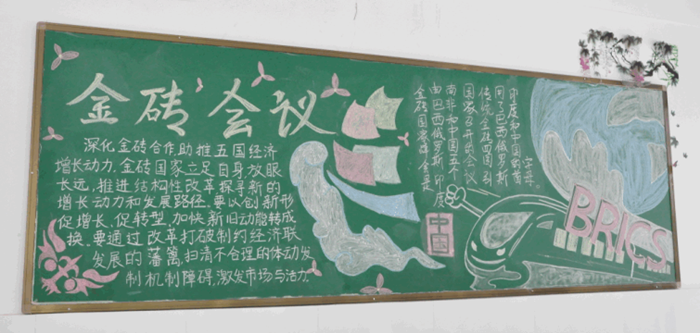 金砖会议
深化金砖合作助推五国经济
增长动力.金砖国家立足自身放眼
长远,推进结构性改革探寻新的
增长动力和发展路径.要以创新形
促增长、促转型,加快新旧动能转成
换.要通过改革打破制约经济联
发展的藩篱,扫清不合理的体动发
制机制障碍,激发市场与活力.
金砖国家峰会是
由巴西俄罗斯、印度
南非和中国五个
国家召开的会议
传统金砖四国引
用了巴西俄罗斯
印度和中国的首
字母.
中国
BRICS